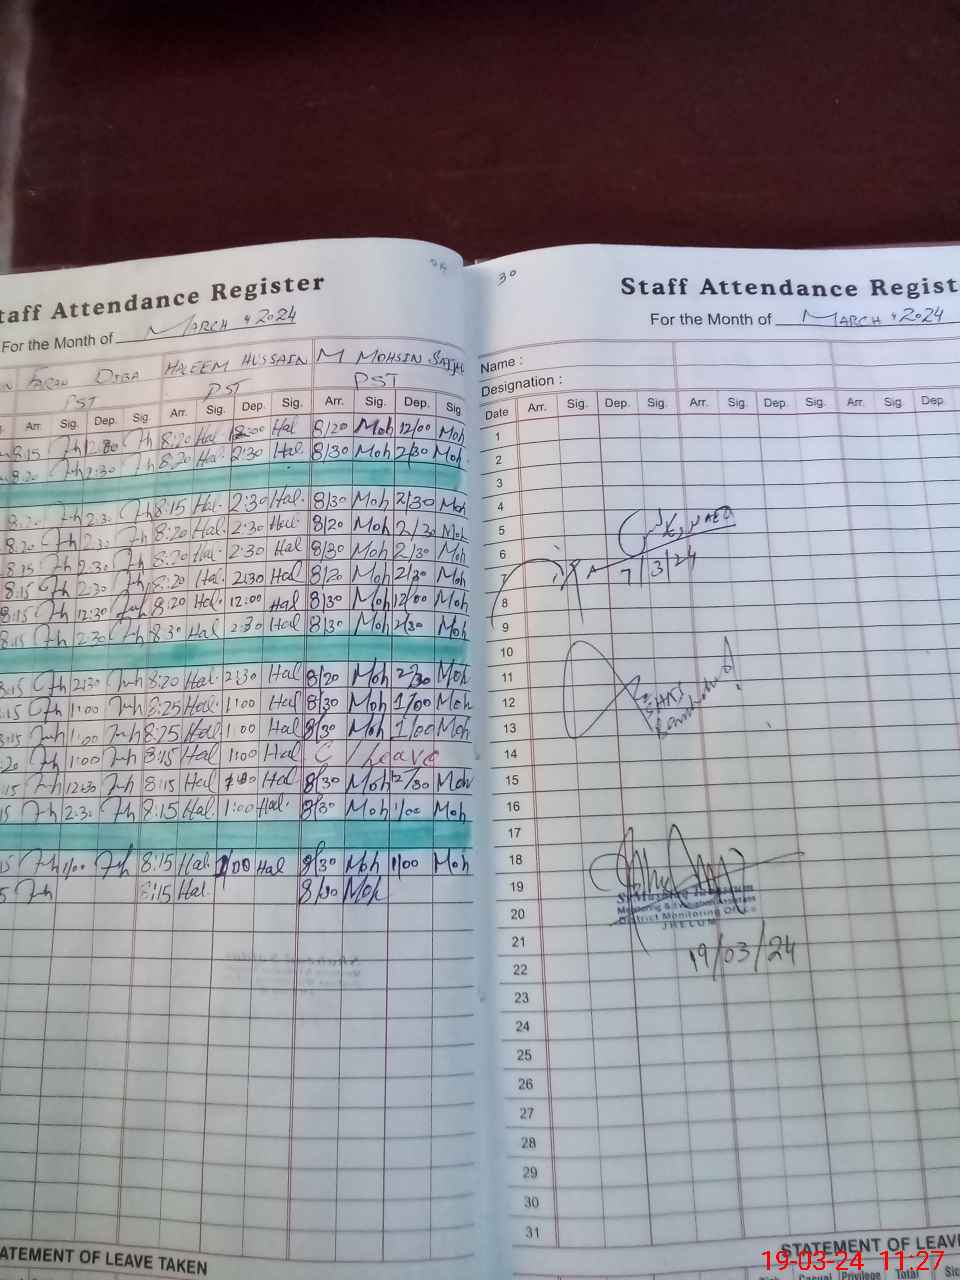 taff Attendance Register
For the Month of MARCH, 2024
FARAH DIBA HALEEM HUSSAIN M MOHSIN SAJJAD
PST PST PST
Arr. Sig. Dep. Sig. Arr. Sig. Dep. Sig. Arr. Sig. Dep. Sig.
8:15 12:00 8:20 Hal 12:00 Hal 8/20 Moh 12/00 Moh
8:20 2:30 8:20 Hal 2:30 Hal 8/30 Moh 2/30 Moh
8:20 2:30 8:15 Hal 2:30 Hal 8/30 Moh 2/30 Moh
8:20 2:30 8:20 Hal 2:30 Hal 8/20 Moh 2/30 Moh
8:15 2:30 8:20 Hal 2:30 Hal 8/30 Moh 2/30 Moh
8:15 2:30 8:20 Hal 2:30 Hal 8/20 Moh 2/30 Moh
8:15 12:30 8:20 Hal 12:00 Hal 8/30 Moh 12/00 Moh
8:15 2:30 8:30 Hal 2:30 Hal 8/30 Moh 2/30 Moh
8:15 2:30 8:20 Hal 2:30 Hal 8/20 Moh 2/30 Moh
:15 1:00 8:25 Hal 1:00 Hal 8/30 Moh 1/00 Moh
8:15 1:00 8:25 Hal 1:00 Hal 8/30 Moh 1/00 Moh
:20 1:00 8:15 Hal 1:00 Hal C/Leave
:15 12:30 8:15 Hal Hal 8/30 Moh 12/30 Moh
15 2:30 8:15 Hal 1:00 Hal 8/30 Moh 1/00 Moh
15 1/00 8:15 Hal 1/00 Hal 8/30 Moh 1/00 Moh
5 8:15 Hal 8/30 Moh
ATEMENT OF LEAVE TAKEN
30
Staff Attendance Regist
For the Month of MARCH, 2024
Name :
Designation :
Date Arr. Sig. Dep. Sig. Arr. Sig. Dep. Sig. Arr. Sig. Dep.
1
2
3
4
5
6
7
7/3/24
8
9
10
11
12
13
14
15
16
17
18
19
20
Monitoring & Evaluation Assistant
District Monitoring Office
JHELUM
21
19/03/24
22
23
24
25
26
27
28
29
30
31
STATEMENT OF LEAV
Casual Privilege Total Sic
19-03-24 11:27